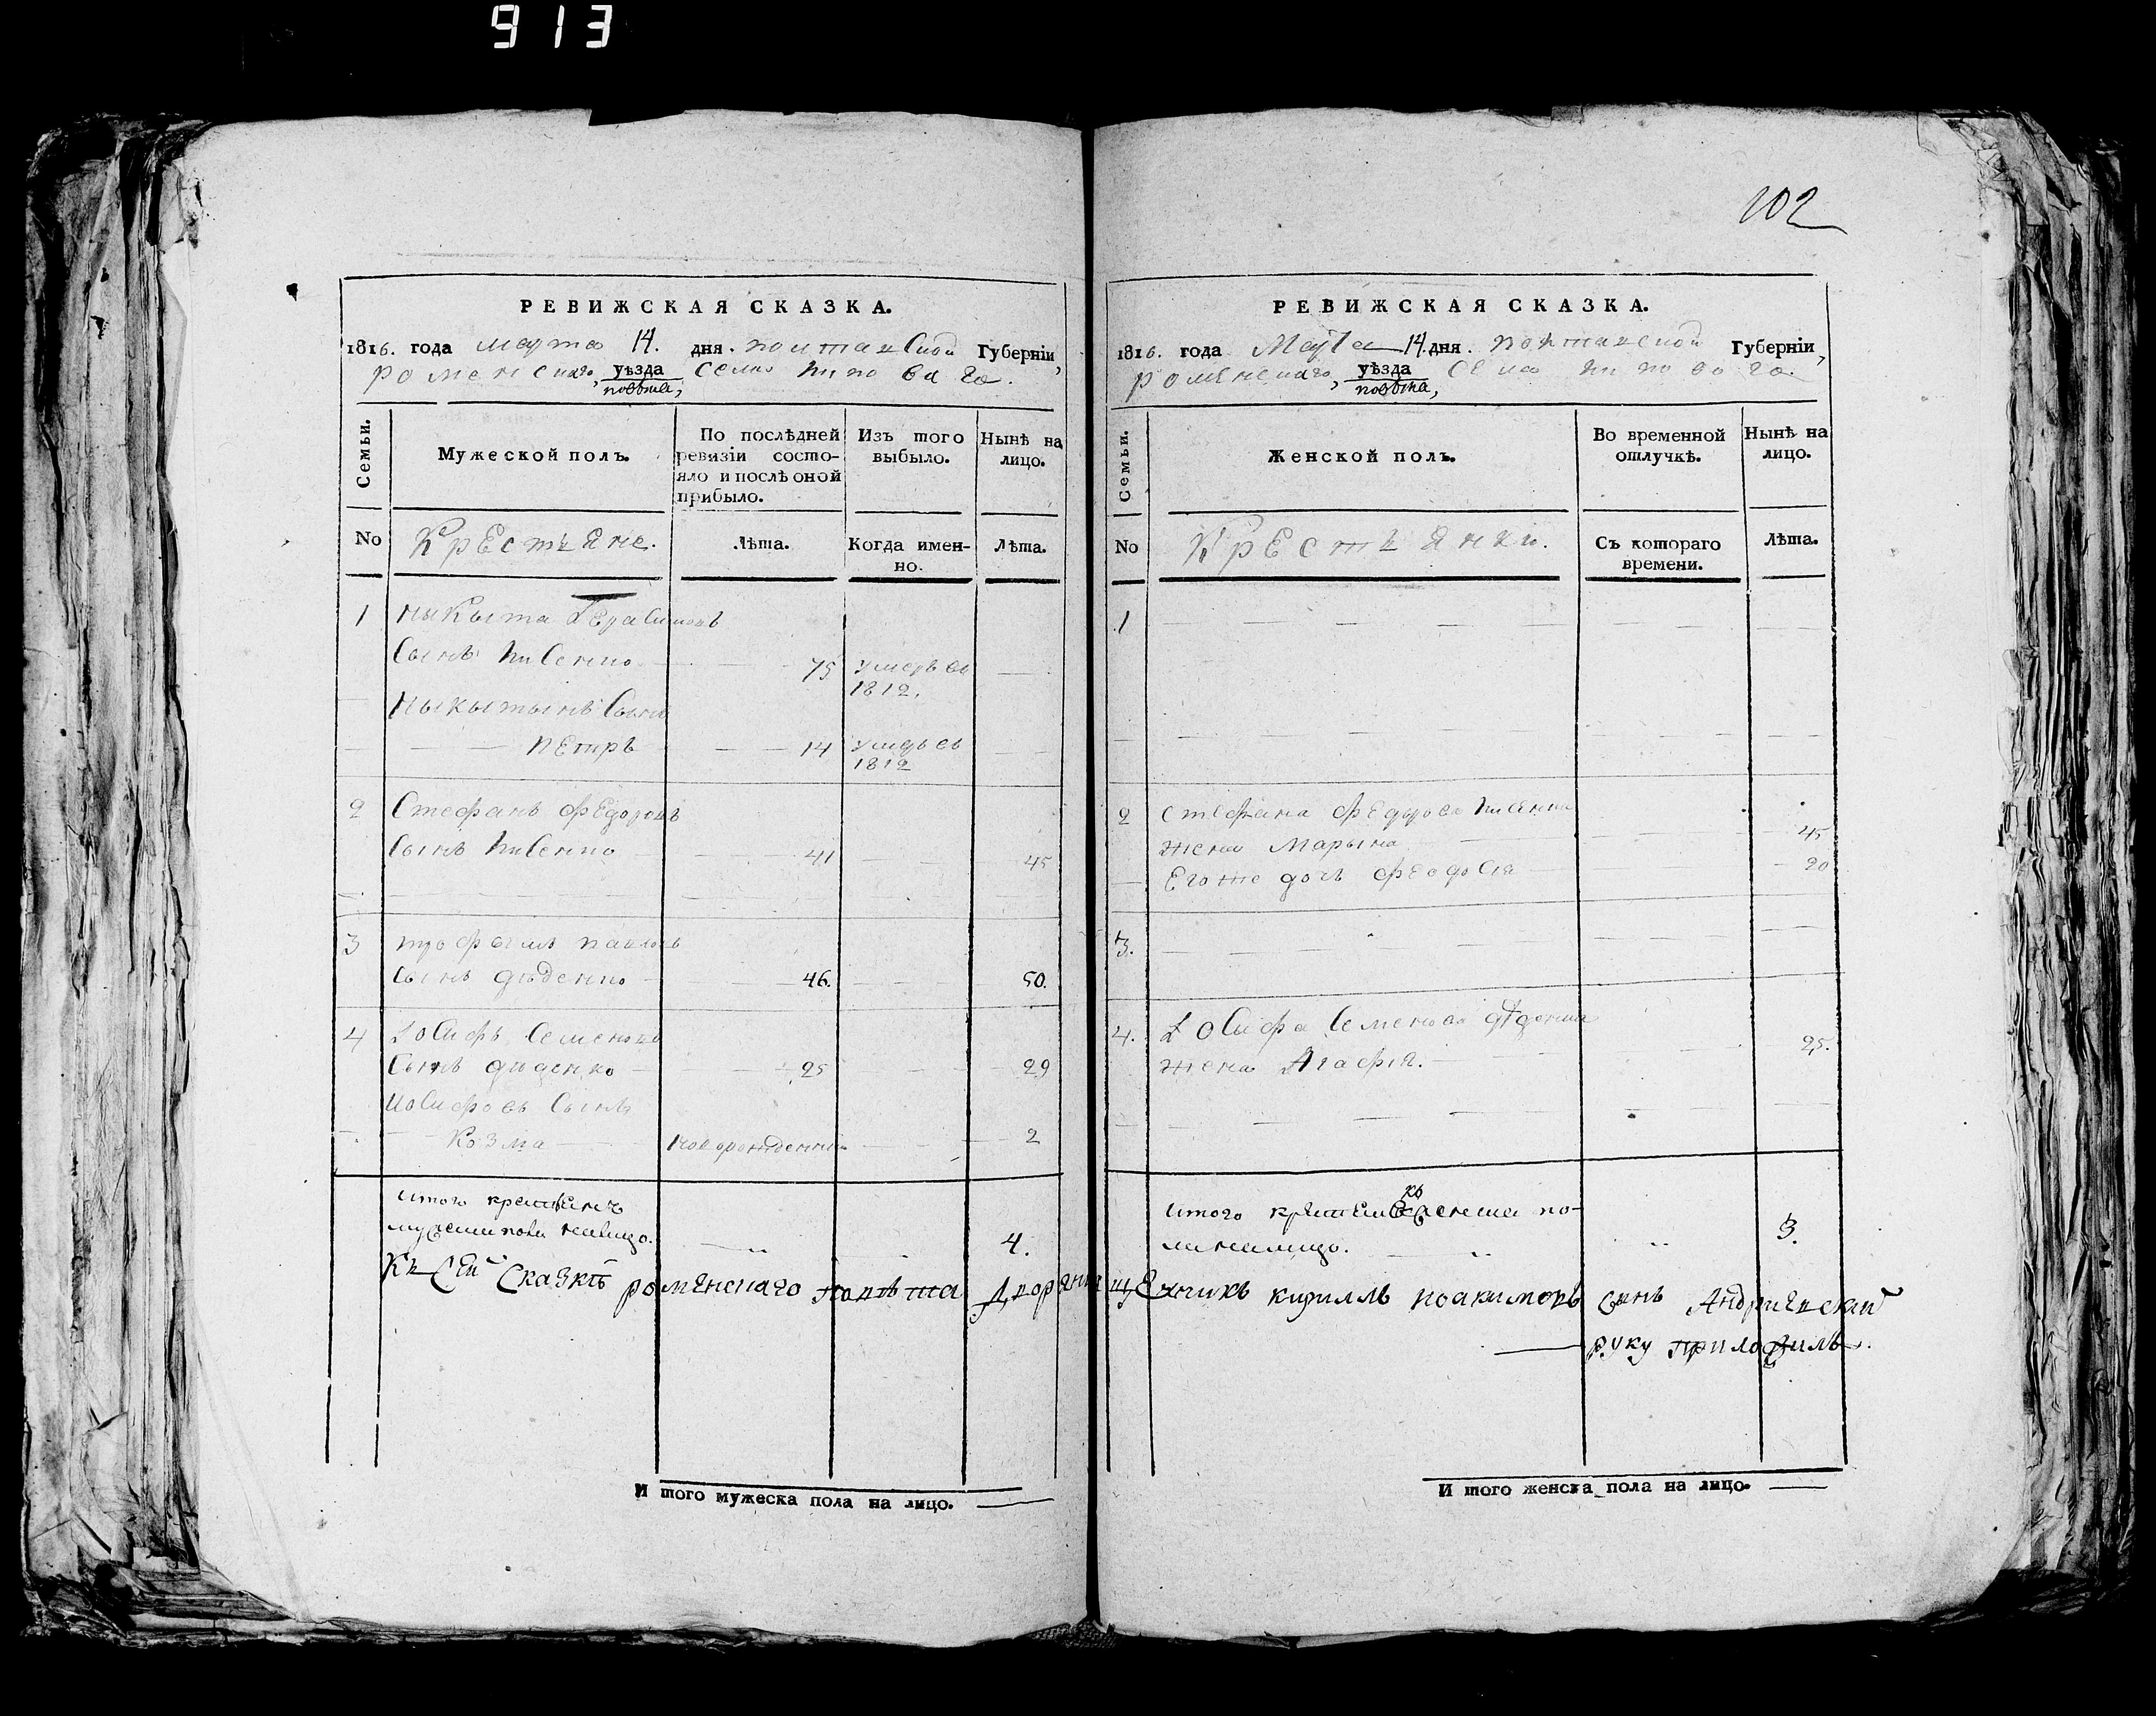 913
102
РЕВИЖСКАЯ СКАЗКА.
1816. года марта 14. дня. полтавской Губерніи,
роменскаго, уѣзда села липоваго.
повѣта,
Семьи.
Мужеской полъ.
По послѣдней ревизіи состояло и послѣ оной прибыло.
Изъ того выбыло.
Нынѣ на лицо.
No
Крестьяне.
Лѣта.
Когда именно.
Лѣта.
1 Ныкыта Герасимовъ
сынъ Лисенко 75 умеръ въ 1812.
Ныкытынъ сынъ
Петръ 14 умеръ въ 1812
2 Стефанъ Федоровъ
сынъ Лисенко 41 45
3 трофимъ павловъ
сынъ дѣденко 46. 50.
4 Іосифъ Семеновъ
сынъ диденко 25 29
Иосифовъ сынъ
Козма новорожденный 2
итого крестьянъ
мужеска пола налицо. 4.
И того мужеска пола на лицо.
РЕВИЖСКАЯ СКАЗКА.
1816. года Марта 14. дня. полтавской Губерніи,
роменскаго, уѣзда села липоваго.
повѣта,
Семьи.
Женской полъ.
Во временной отлучкѣ.
Нынѣ на лицо.
No
Крестьянки.
Съ котораго времени.
Лѣта.
1
2 Стефана Федорова Лисенка
жена Марына 45
Егоже дочь Феодосія 20
3.
4. Іосифа Семенова дѣденка
жена Агафія. 25.
итого крестьянокъ женска по-
ла налицо. 3.
Къ сей сказкѣ роменскаго повѣта дворянинъ кирилль иоакимовъ сынъ Андріевскій
руку приложилъ.
И того женска пола на лицо.